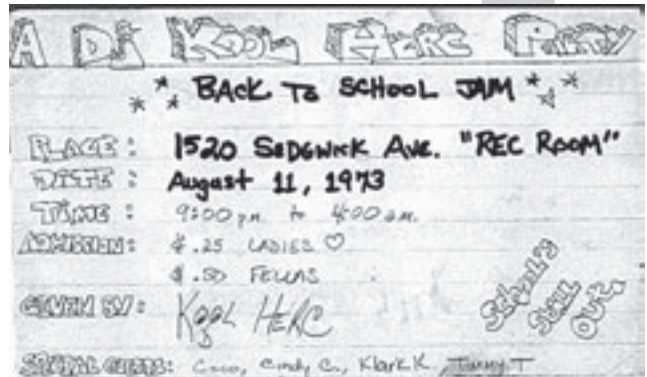 A DJ KOOL HERC PARTY
* * BACK TO SCHOOL JAM * * *
PLACE: 1520 SEDGWICK AVE. "REC ROOM"
DATE: August 11, 1973
TIME: 9:00 pm to 4:00 am.
ADMISSION: $.25 LADIES ♡
$.50 FELLAS
School's Still Out.
GIVEN BY: KOOL HERC
SPECIAL GUESTS: Coco, Cindy C., Klark K., Timmy T